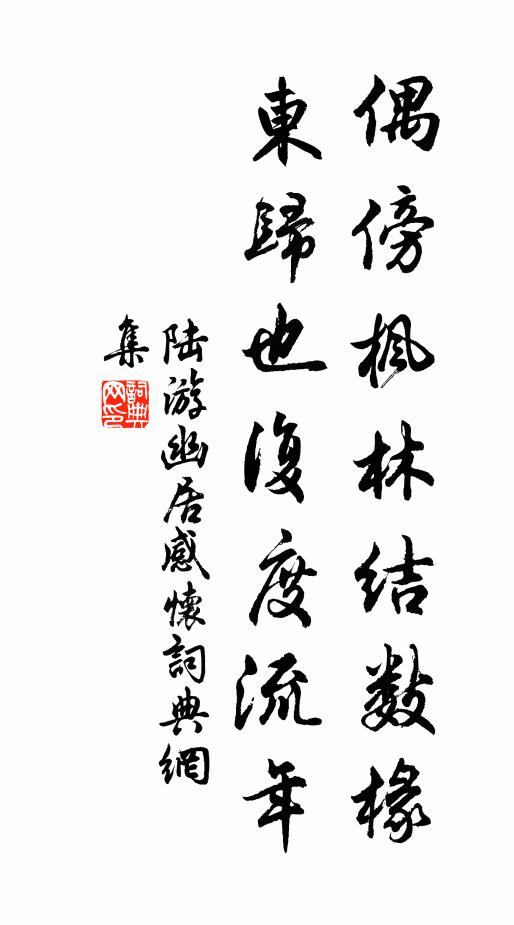 偶傍楓林結數椽
東歸也復度流年
陸游幽居感懷詞典網
集
詞典网印